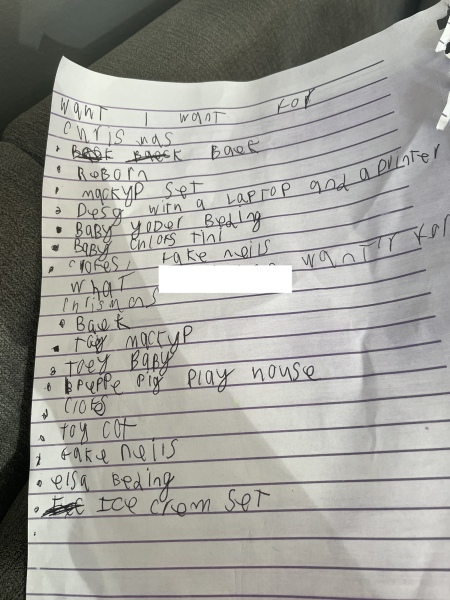 want I want for
chrismas
Baek
ReBorn
mackyp set
Desg with a Laptop and a printer
Baby yoder Beding
Baby chlofs
clotes/ fake neils
what want It for
chrismas
Baek
Tay mackyp
toey Baby
Pruppe pig play house
clots
toy cot
fake neils
elsa Beding
Ice crem set